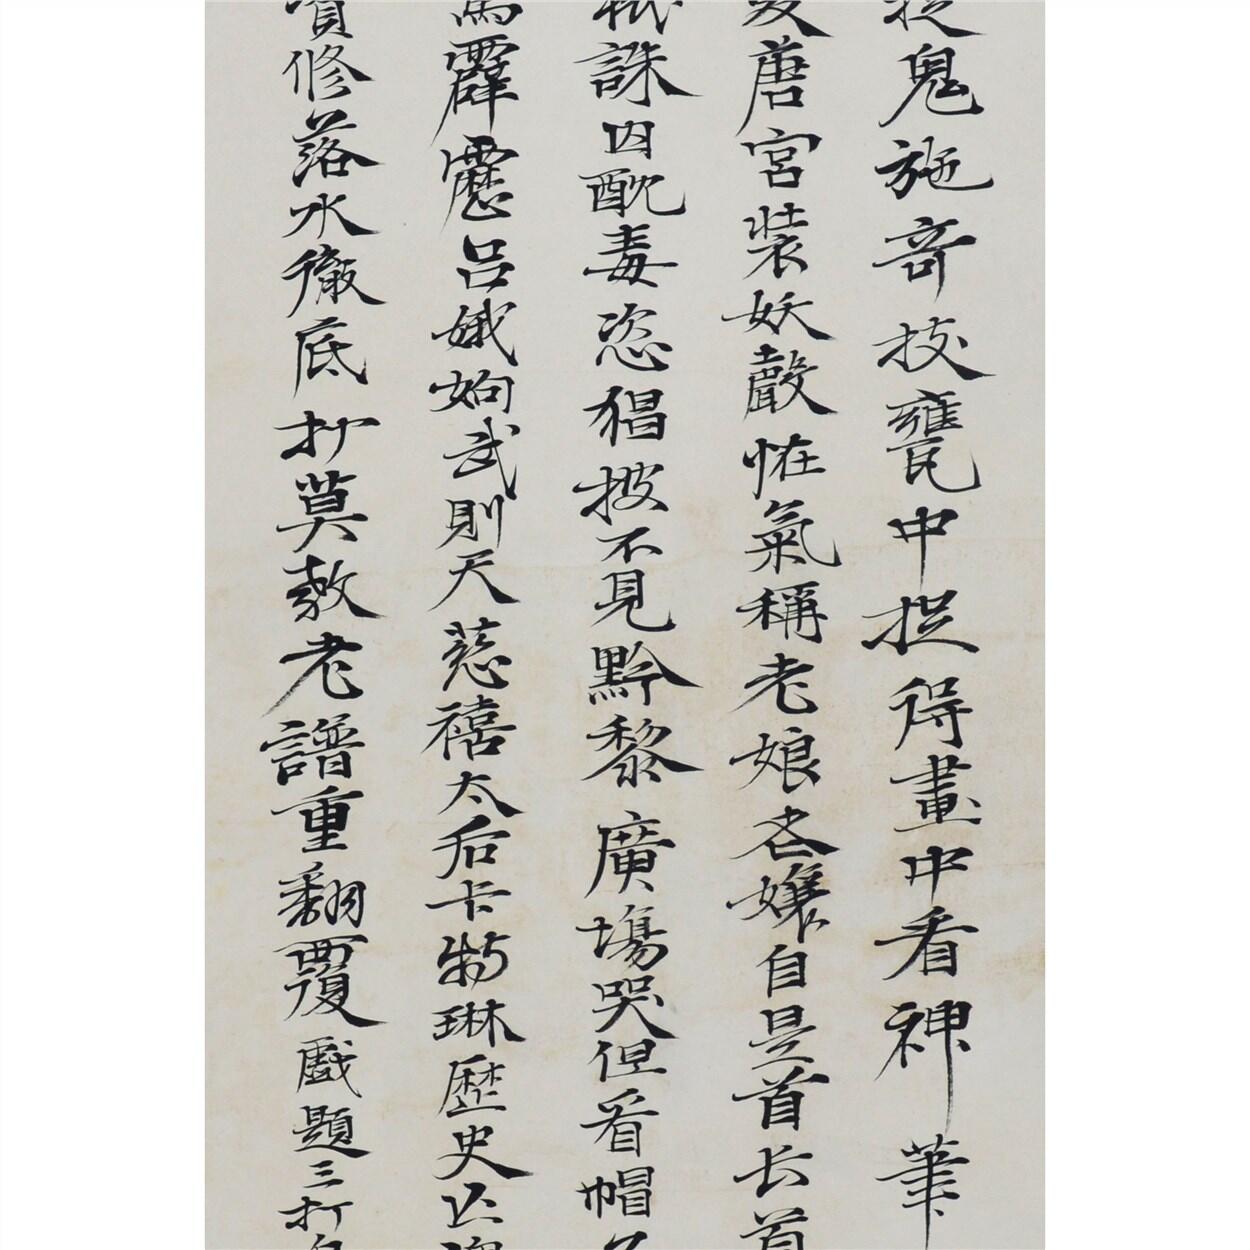 捉鬼施奇技甕中捉得畫中看神筆
唐宮裝妖聲怪氣稱老娘老孃自是首长首
誅囚酖毒恣猖披不見黔黎廣場哭但看帽
霹靂呂娥姁武則天慈禧太后卡特琳歷史
修落水徹底抄莫教老譜重翻覆戲題三打